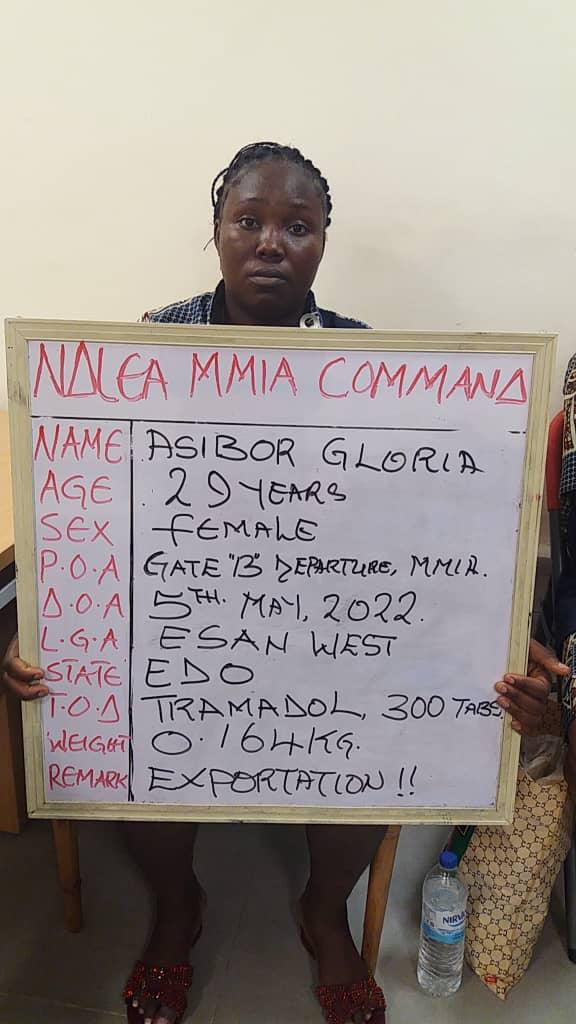 NDLEA MMIA COMMAND
NAME ASIBOR GLORIA
AGE 29 YEARS
SEX FEMALE
P.O.A GATE "B" DEPARTURE, MMIA.
D.O.A 5TH. MAY, 2022.
L.G.A ESAN WEST
STATE EDO
T.O.D TRAMADOL, 300 TABS.
WEIGHT 0.164KG.
REMARK EXPORTATION!!